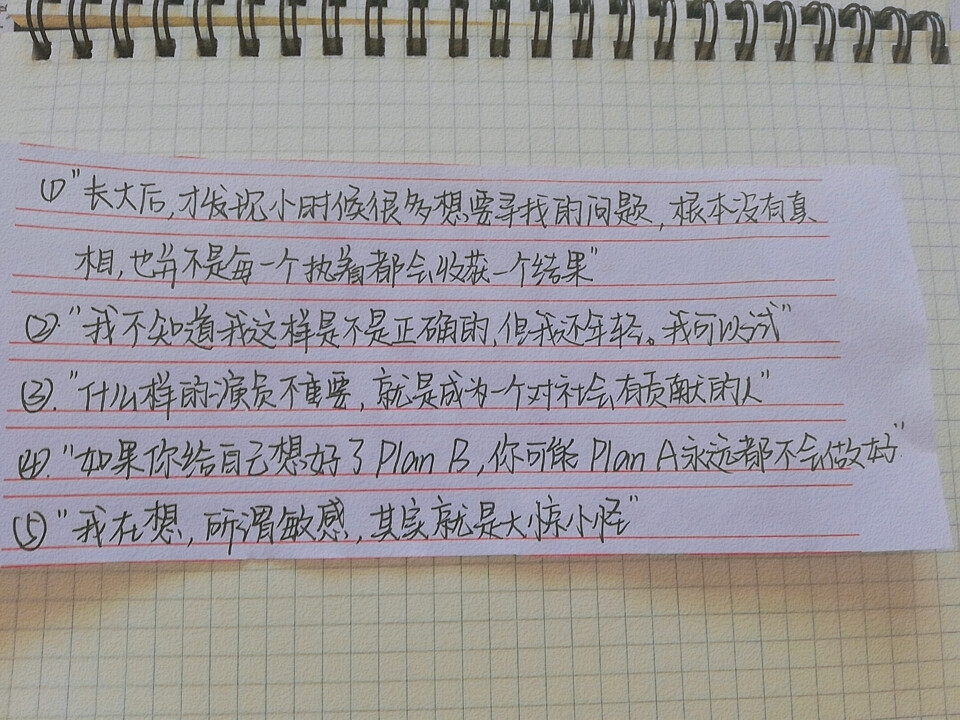 ①"长大后,才发现小时候很多想要寻找的问题,根本没有真
相,也并不是每一个执着都会收获一个结果"
②."我不知道我这样是不是正确的,但我还年轻。我可以试"
③."什么样的演员不重要,就是成为一个对社会有贡献的人"
④."如果你给自己想好了Plan B,你可能Plan A永远都不会做好"
⑤"我在想,所谓敏感,其实就是大惊小怪"